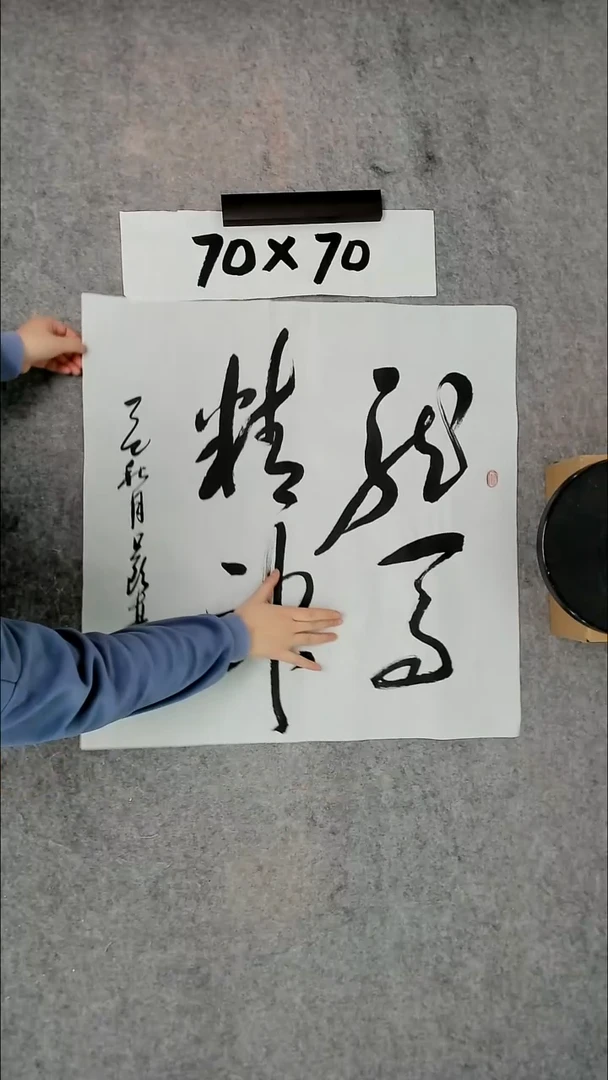 70×70
龙马
精神
乙巳秋月